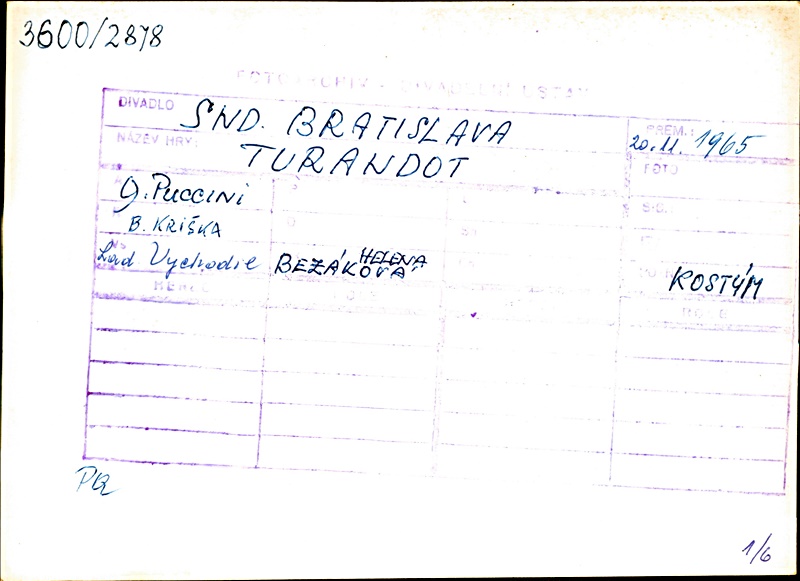 3600/2878
FOTOARCHIV - DIVADELNÍ ÚSTAV
DIVADLO SND. BRATISLAVA PREM.: 20.11. 1965
NÁZEV HRY: TURANDOT
FOTO
G. PUCCINI
B. KRIŠKA
Lad Vychodil BEZÁKOVÁ HELENA KOSTÝM
PQ
1/6